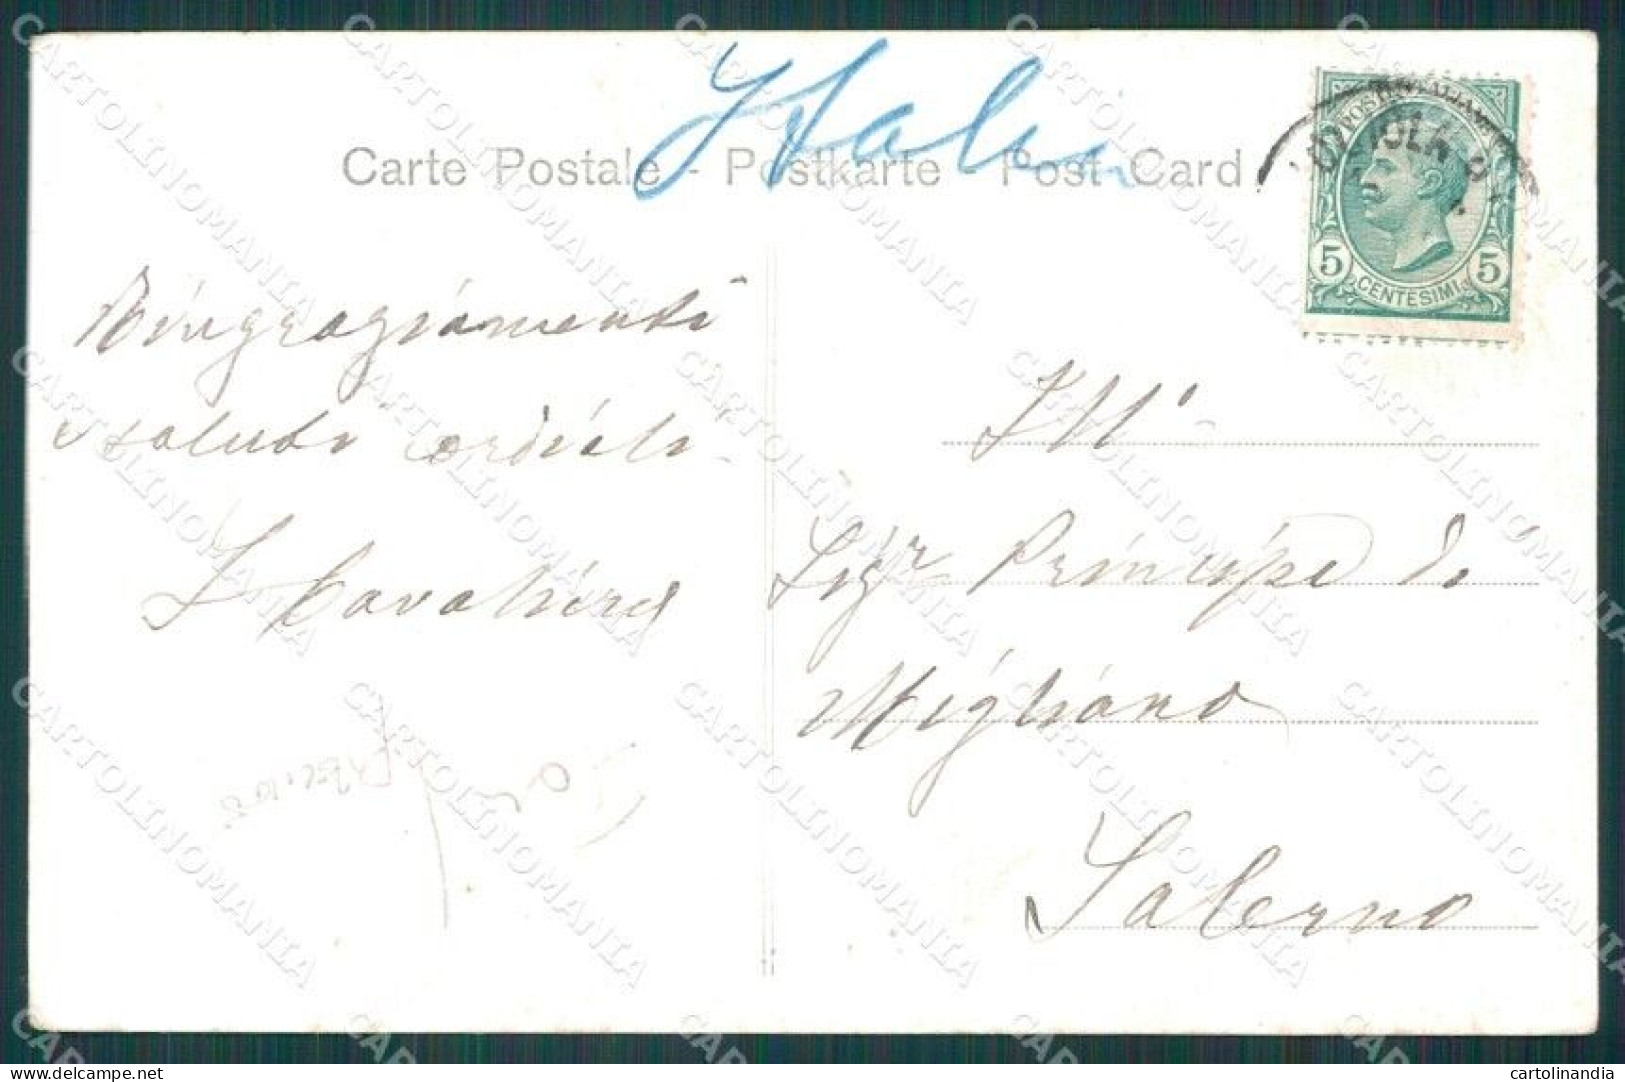 Italia
Carte Postale - Postkarte - Post Card
POSTE ITALIANE
5 CENTESIMI 5
Ringraziamenti
saluti cordiali
Ill.
Sigr Principe di
Migliano
Salerno
delcampe.net
cartolinandia